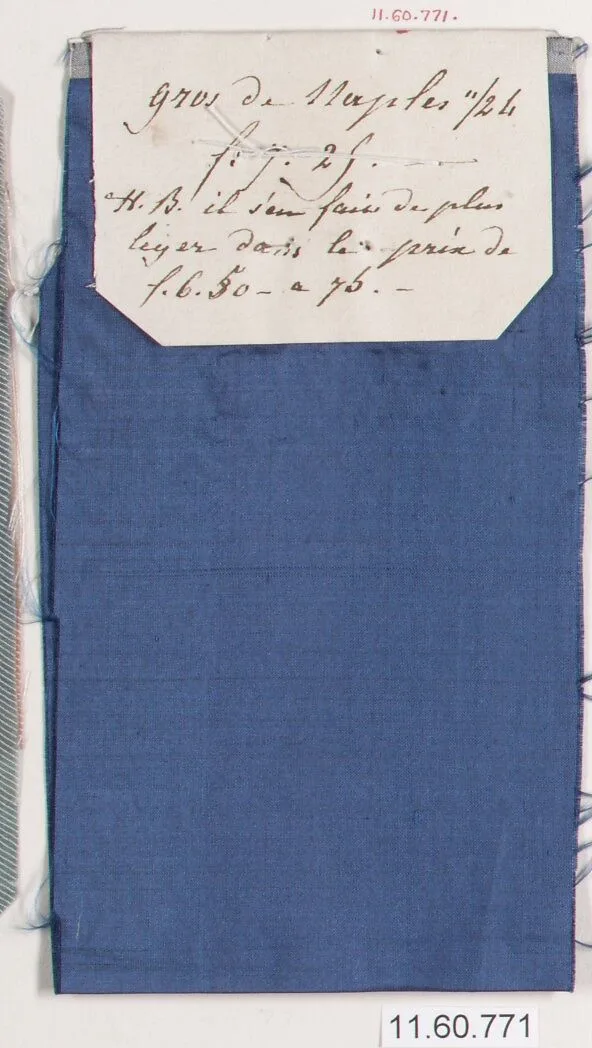 11.60.771.
gros de Naples 11/24
f. 7. 25.
N.B. il s'en fait de plus
leger dans le prix de
f. 6. 50 - a 75. -
11.60.771